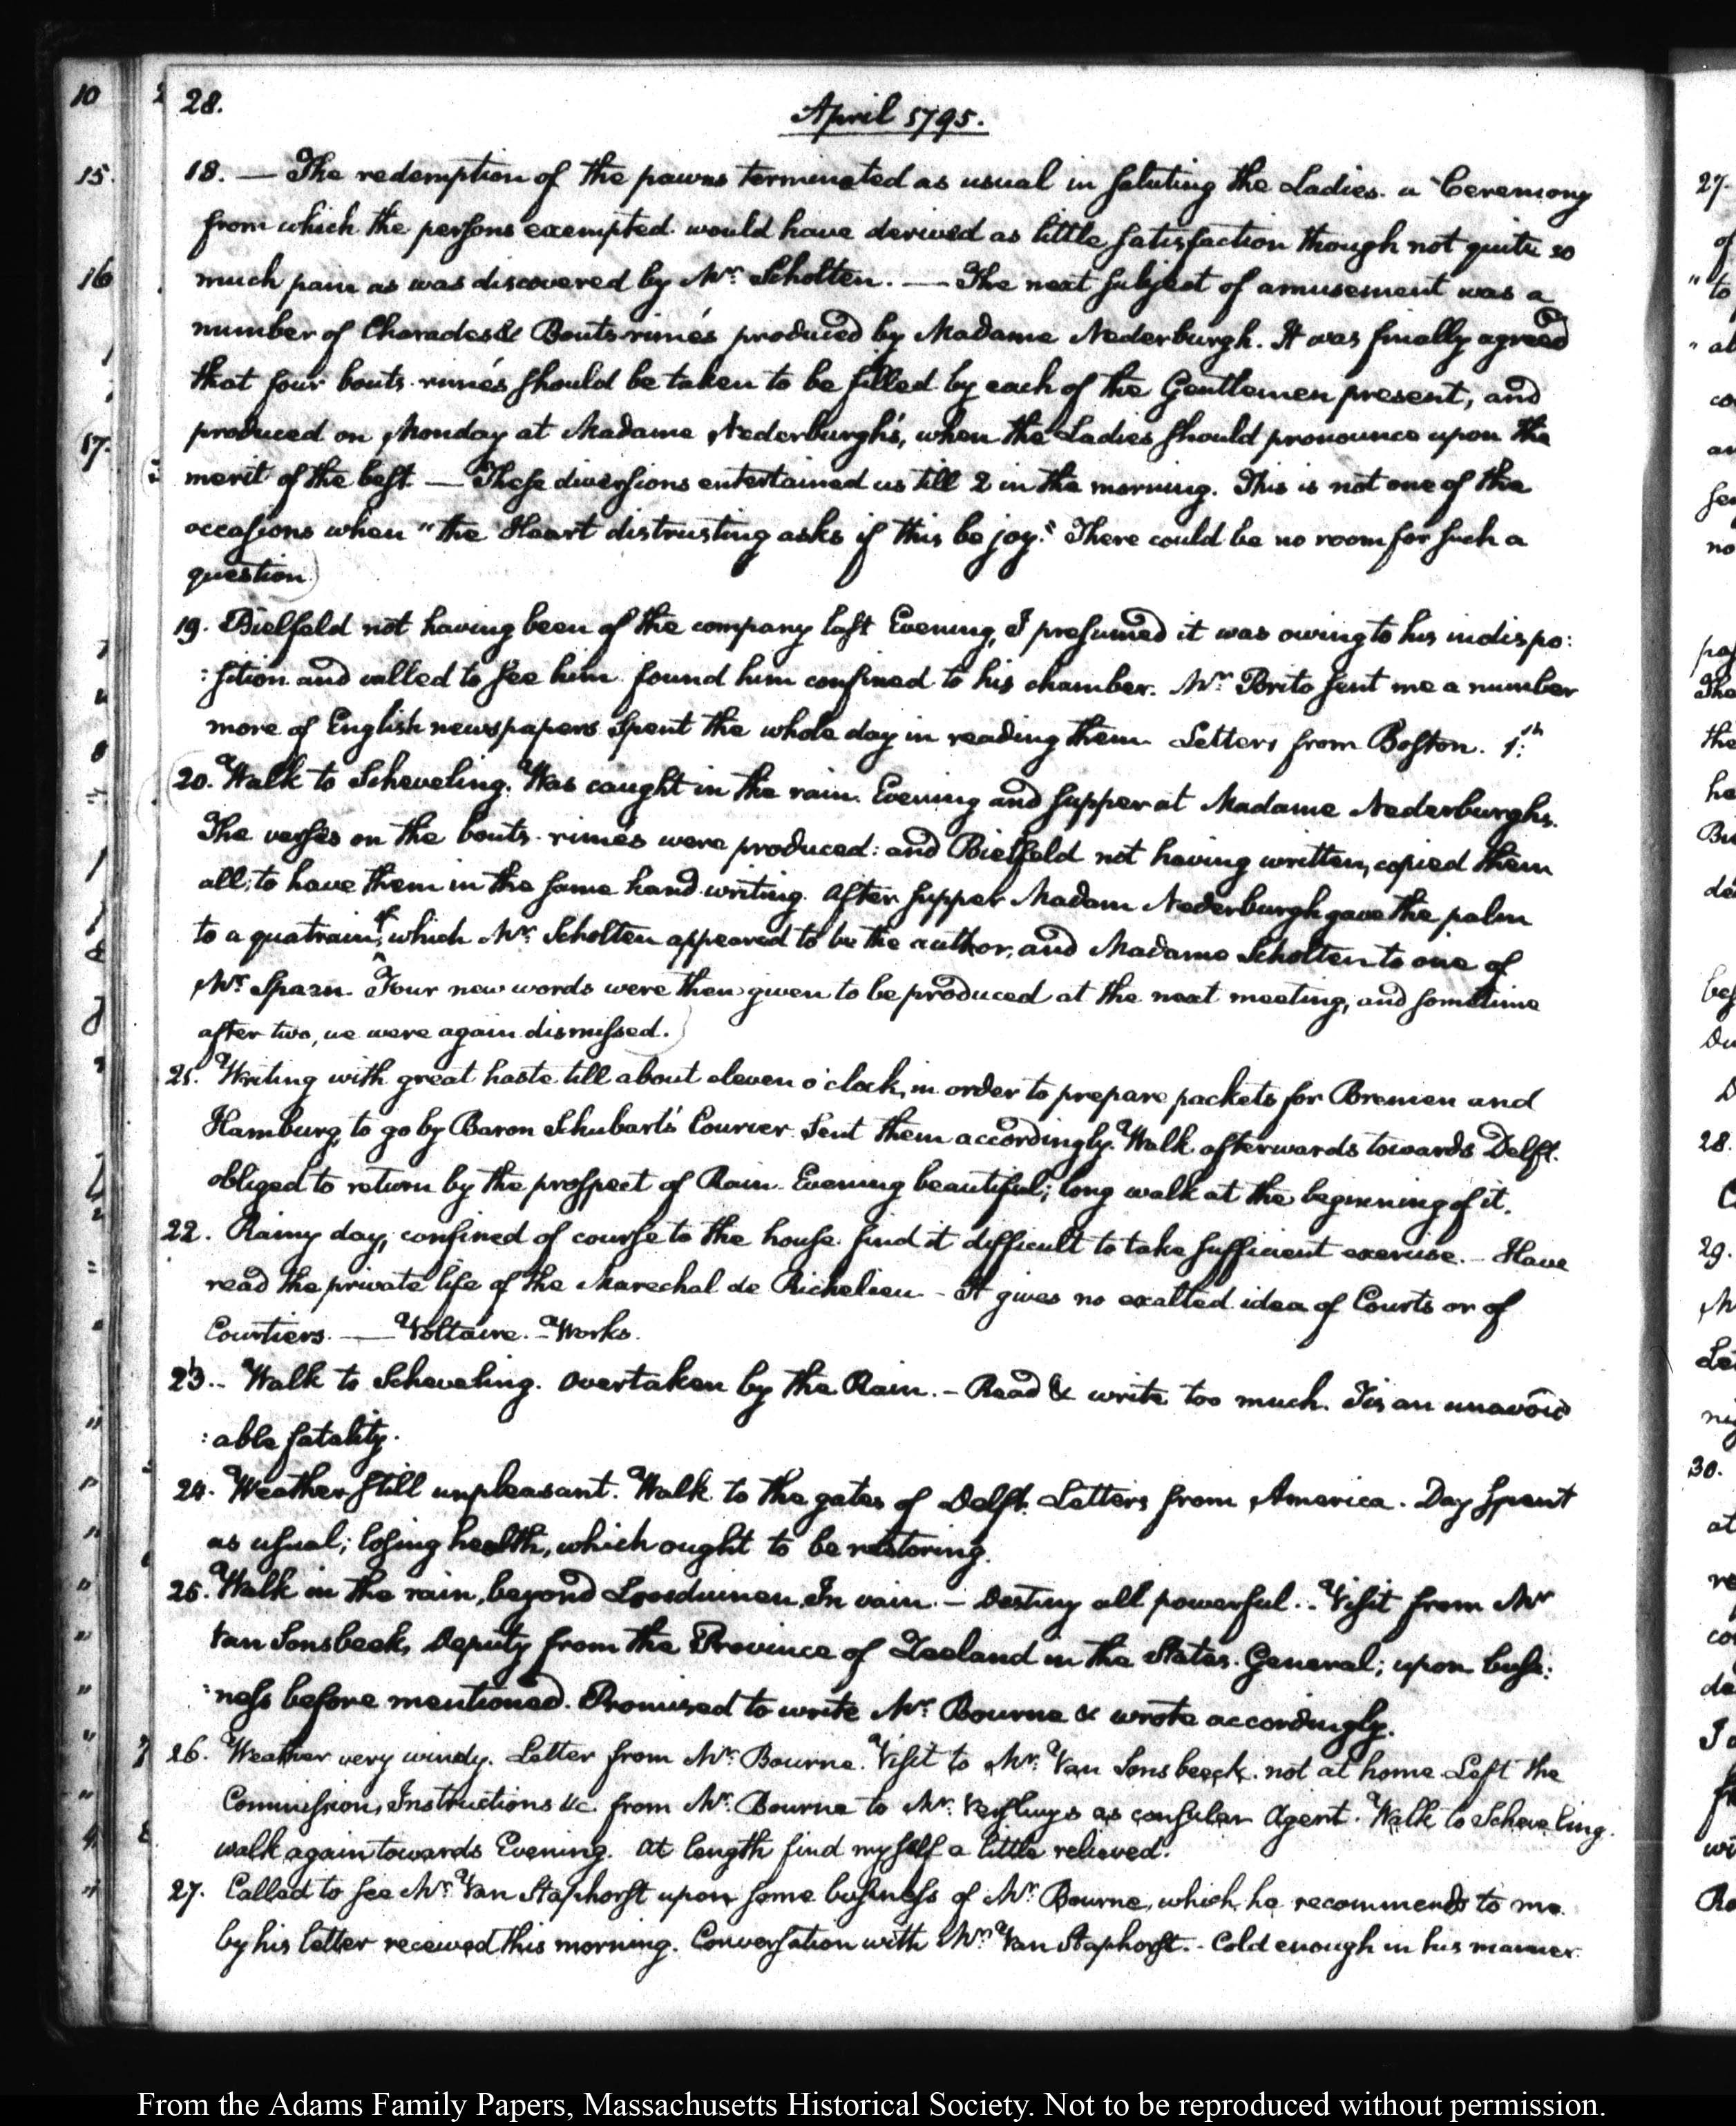 28.
April 1795.
18. — The redemption of the pawns terminated as usual in saluting the Ladies. a Ceremony
from which the persons exempted would have derived as little satisfaction though not quite so
much pain as was discovered by Mr. Scholten. — The next subject of amusement was a
number of Charades & Bouts-rimés produced by Madame Nederburgh. It was finally agreed
that four bouts-rimés should be taken to be filled by each of the Gentlemen present, and
produced on Monday at Madame Nederburgh's, when the Ladies should pronounce upon the
merit of the best — These diversions entertained us till 2 in the morning. This is not one of the
occasions when "the Heart distrusting asks if this be joy." There could be no room for such a
question.)
19. Bielfeld not having been of the company last Evening, I presumed it was owing to his indispo:
:sition and called to see him. found him confined to his chamber. Mr. Brito sent me a number
more of English newspapers. Spent the whole day in reading them. Letters from Boston.
(20. Walk to Scheveling. Was caught in the rain. Evening and supper at Madame Nederburghs.
The verses on the bouts-rimés were produced: and Bielfeld not having written, copied them
all, to have them in the same hand-writing. After supper Madam Nederburgh gave the palm
to a quatrain, of which Mr. Scholten appeared to be the author, and Madame Scholten to one of
Mr. Spaan. Four new words were then given to be produced at the next meeting, and sometime
after two, we were again dismissed.)
21. Writing with great haste till about eleven o'clock, in order to prepare packets for Bremen and
Hamburg, to go by Baron Schubart's Courier. Sent them accordingly. Walk afterwards towards Delft.
obliged to return by the prospect of Rain. Evening beautiful; long walk at the beginning of it.
22. Rainy day, confined of course to the house. find it difficult to take sufficient exercise. — Have
read the private life of the Marechal de Richelieu — It gives no exalted idea of Courts or of
Courtiers. — Voltaire. — Works.
23. - Walk to Scheveling. Overtaken by the Rain. — Read & write too much. Tis an unavoid
:able fatality.
24. Weather still unpleasant. Walk to the gates of Delft. Letters from America. Day spent
as usual; losing health, which ought to be restoring.
25. Walk in the rain, beyond Loosduinen. In vain. — Destiny all powerful. - Visit from Mr
Van Sonsbeek, Deputy from the Province of Zeeland in the States-General; upon busi:
:ness before mentioned. Promised to write Mr. Bourne & wrote accordingly.
26. Weather very windy. Letter from Mr. Bourne. Visit to Mr. Van Sonsbeeck. not at home. Left the
Commission, Instructions &c. from Mr. Bourne to Mr. as consular Agent. Walk to Scheveling.
walk again towards Evening. At length find myself a little relieved.
27. Called to see Mr. Van Staphorst upon some business of Mr. Bourne, which he recommends to me
by his letter received this morning. Conversation with Mr. Van Staphorst. - Cold enough in his manner
From the Adams Family Papers, Massachusetts Historical Society. Not to be reproduced without permission.